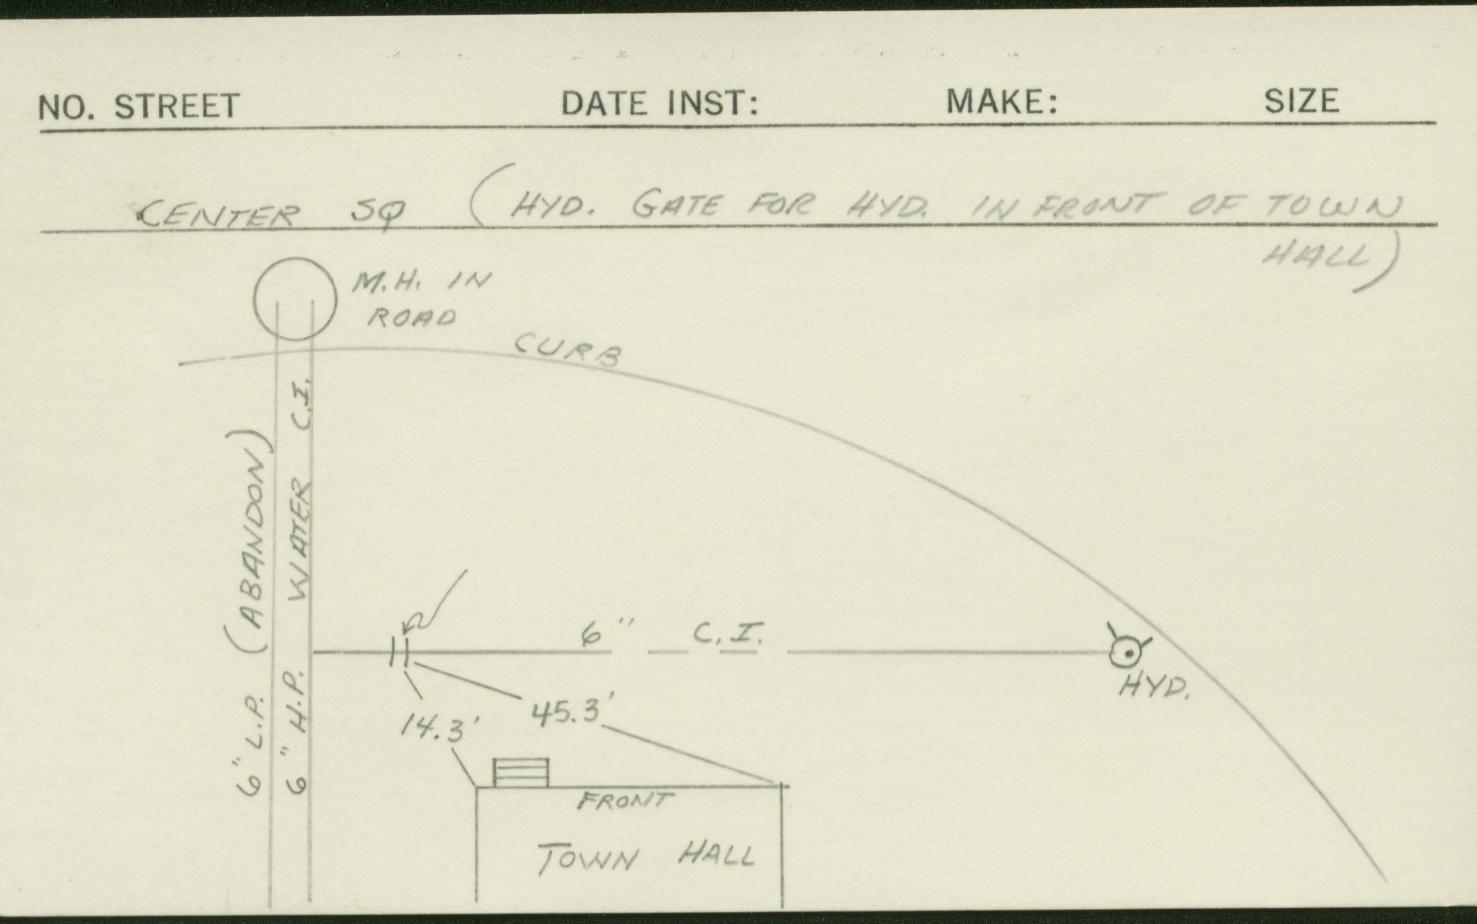 NO. STREET DATE INST: MAKE: SIZE
CENTER SQ (HYD. GATE FOR HYD. IN FRONT OF TOWN
HALL)
M.H. IN
ROAD
CURB
6" L.P. (ABANDON)
6" H.P. WATER C.I.
6" C.I.
HYD.
14.3'
45.3'
FRONT
TOWN HALL